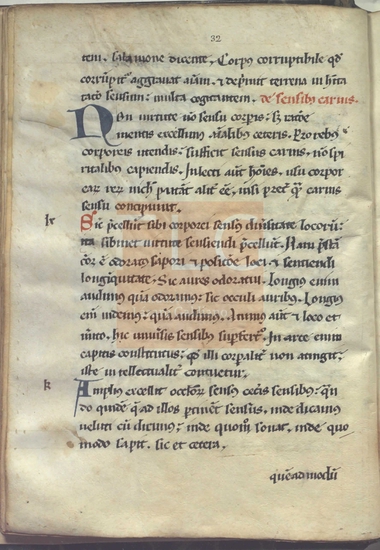 32
tem. salamone dicente. Corpus corruptibile qd
corrũpit aggrauat aiam. & dep̃mit terrena inhita
tacio sensum: multa cogitantem. de sensibus carnis.
Non uirtute uo sensu corpis: s; ratõe
mentis excellimus aialibus ceteris. Pro rebus
corporeis intendis: sufficit sensus carnis, nõ spi
ritalibus capiendis. Infecti aut hoies. usu corpor
eare rer nich putãt alit eẽ, nisi pret q carnis
sensu concipiunt.
lx
Sic p̃cellunt sibi corporei sensus diuersitate locorum:
ita sibimet uirtute sentiendi p̃cellunt. Nam
odoratus sapori & positõe loci & sentiendi
longinquitate. Sic aures odoratui. Longius enim
audimus quã odoramus: Sic occuli auribus. Longius
eni uidemus: quã audimus. Animus aut & loco et
mito. hic uniuersis sensibus supfertur. In arce enim
capitis constitutus: qd illi corpalit non atingit:
iste intellectualit contuetur.
k
Amplius excellit oculor sensus ceteris sensibus: qñ
do quidẽ q̃ ad illos ptinẽt sensus, inde dicamus
ueluti cũ dicimus: uide quom sonat. uide quo
modo sapit. sic et cetera.
quẽadmodũ